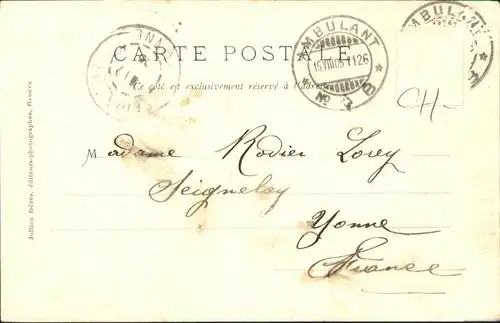 CARTE POSTALE
Ce côté est exclusivement réservé à l'adresse
AMBULANT
16.VIII.05 - 1126
No
AMBULANT
CH-
Madame Rodier Lorey
Seignelay
Yonne
France
Jullien frères, éditeurs-photographes, Genève